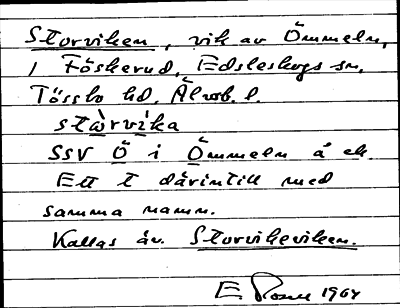 Storviken, vik av Ömmeln,
i Föskerud, Edsleskogs sn,
Tössbo hd, Älvsb. l.
stàrvika
SSV Ö i Ömmeln å ek.
Ett t därintill med
samma namn.
Kallas äv. Storvikeviken.
E 1964